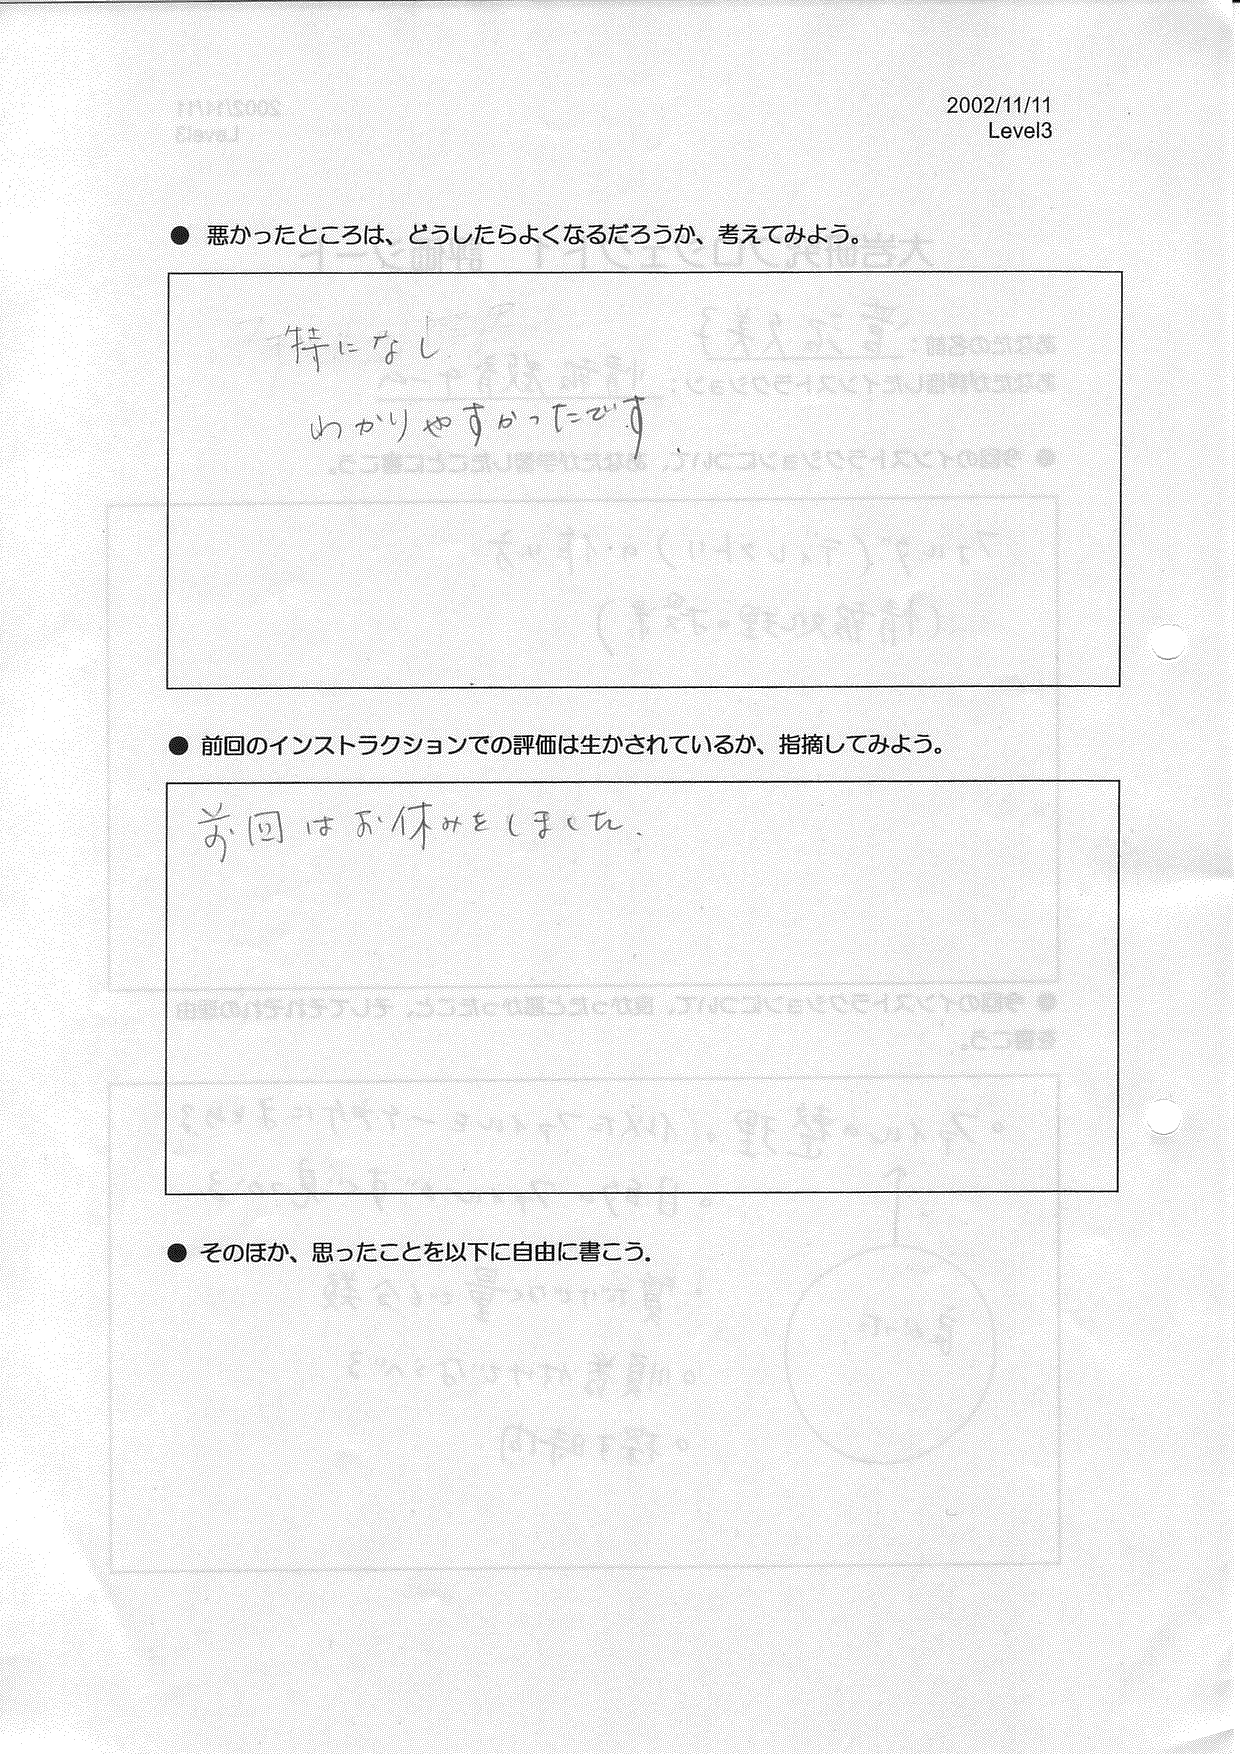 2002/11/11
Level3
● 悪かったところは、どうしたらよくなるだろうか、考えてみよう。
特になし.
わかりやすかったです.
● 前回のインストラクションでの評価は生かされているか、指摘してみよう。
前回はお休みをしました.
● そのほか、思ったことを以下に自由に書こう.